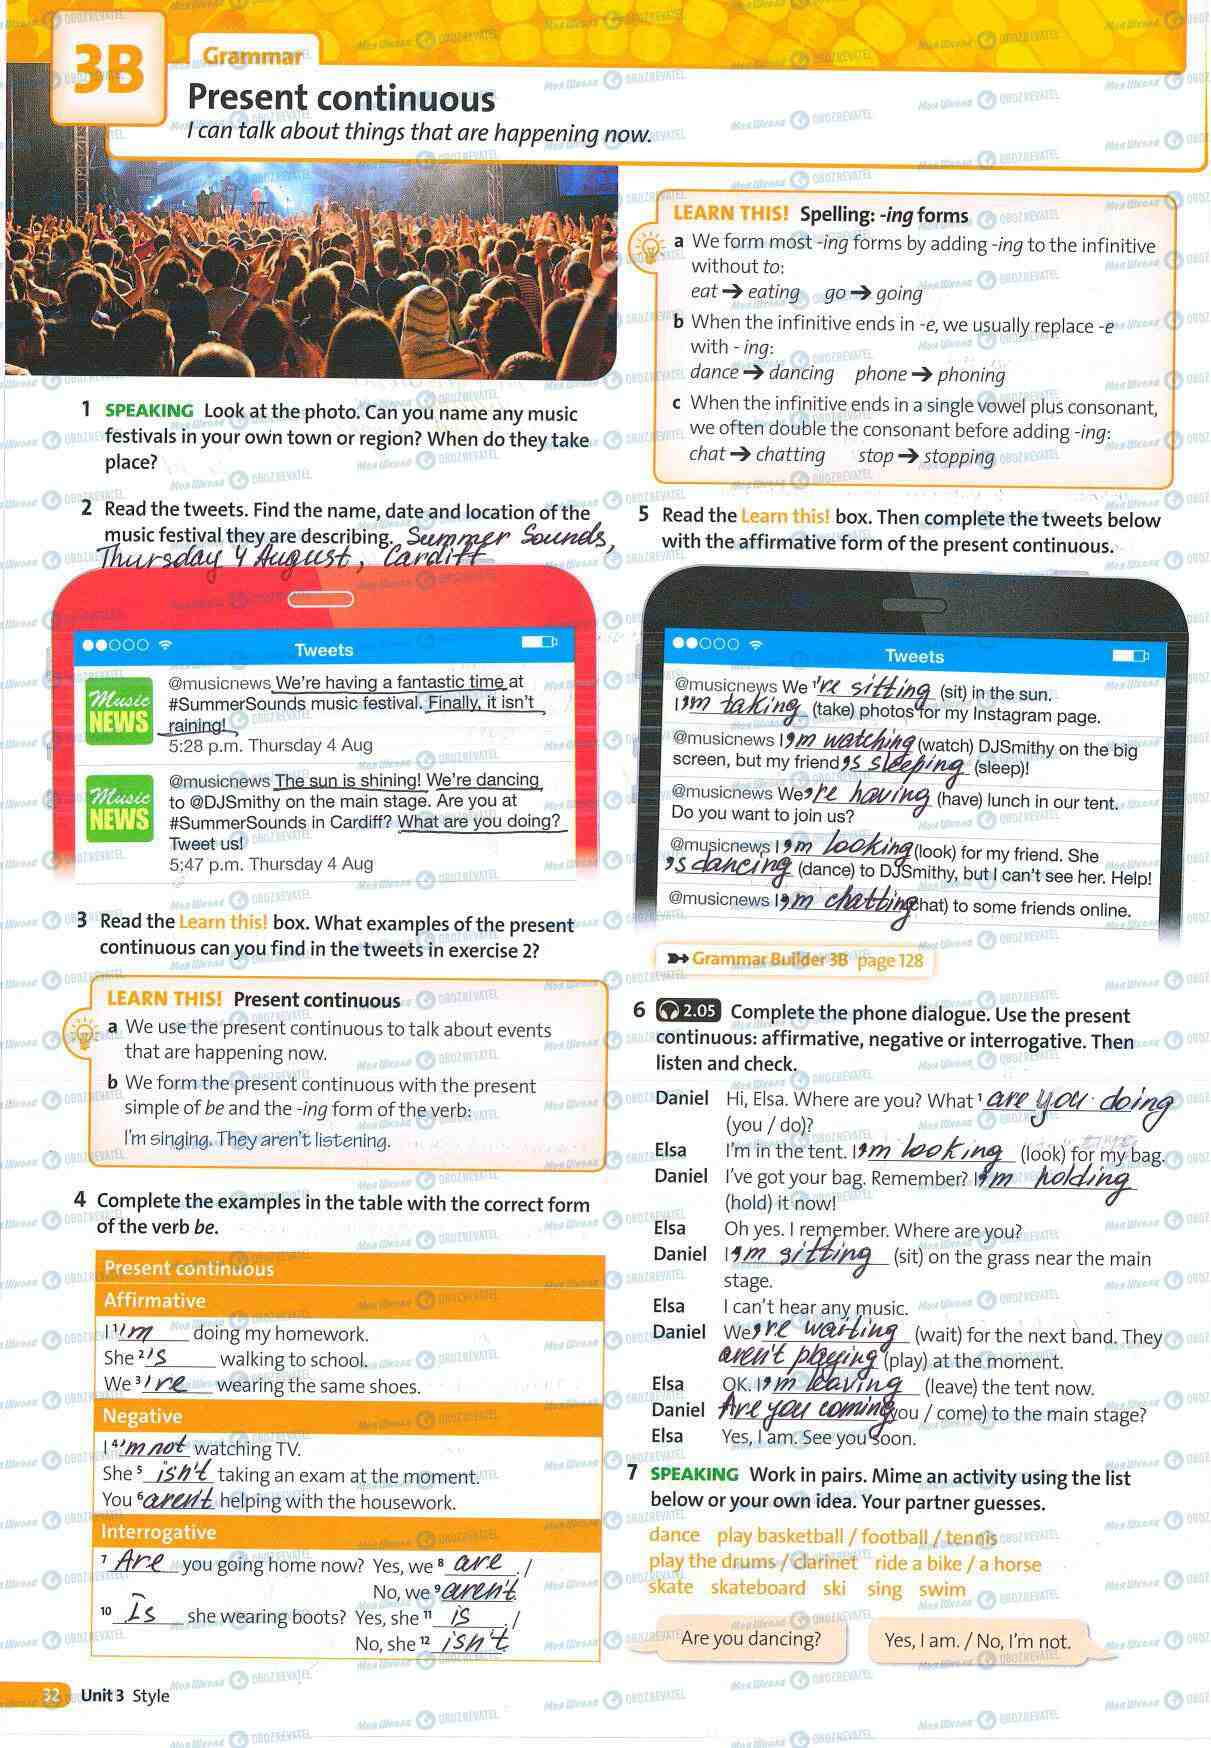 3B
Grammar
Present continuous
I can talk about things that are happening now.
1 SPEAKING Look at the photo. Can you name any music
festivals in your own town or region? When do they take
place?
2 Read the tweets. Find the name, date and location of the
music festival they are describing. Summer Sounds,
Thursday 4 August, Cardiff
Tweets
Music
NEWS
@musicnews We're having a fantastic time at
#SummerSounds music festival. Finally, it isn't
raining!
5:28 p.m. Thursday 4 Aug
Music
NEWS
@musicnews The sun is shining! We're dancing
to @DJSmithy on the main stage. Are you at
#SummerSounds in Cardiff? What are you doing?
Tweet us!
5:47 p.m. Thursday 4 Aug
3 Read the Learn this! box. What examples of the present
continuous can you find in the tweets in exercise 2?
LEARN THIS! Present continuous
a We use the present continuous to talk about events
that are happening now.
b We form the present continuous with the present
simple of be and the -ing form of the verb:
I'm singing. They aren't listening.
4 Complete the examples in the table with the correct form
of the verb be.
Present continuous
Affirmative
I 1 'm doing my homework.
She 2 's walking to school.
We 3 're wearing the same shoes.
Negative
I 4 'm not watching TV.
She 5 isn't taking an exam at the moment.
You 6 aren't helping with the housework.
Interrogative
7 Are you going home now? Yes, we 8 are. /
No, we 9 aren't.
10 Is she wearing boots? Yes, she 11 is. /
No, she 12 isn't.
32 Unit 3 Style
LEARN THIS! Spelling: -ing forms
a We form most -ing forms by adding -ing to the infinitive
without to:
eat → eating go → going
b When the infinitive ends in -e, we usually replace -e
with - ing:
dance → dancing phone → phoning
c When the infinitive ends in a single vowel plus consonant,
we often double the consonant before adding -ing:
chat → chatting stop → stopping
5 Read the Learn this! box. Then complete the tweets below
with the affirmative form of the present continuous.
Tweets
@musicnews We 1 're sitting (sit) in the sun.
I 'm taking (take) photos for my Instagram page.
@musicnews I 'm watching (watch) DJSmithy on the big
screen, but my friend 's sleeping (sleep)!
@musicnews We 're having (have) lunch in our tent.
Do you want to join us?
@musicnews I 'm looking (look) for my friend. She
's dancing (dance) to DJSmithy, but I can't see her. Help!
@musicnews I 'm chatting chat) to some friends online.
Grammar Builder 3B page 128
6 2.05 Complete the phone dialogue. Use the present
continuous: affirmative, negative or interrogative. Then
listen and check.
Daniel Hi, Elsa. Where are you? What 1 are you doing
(you / do)?
Elsa I'm in the tent. I 'm looking (look) for my bag.
Daniel I've got your bag. Remember? I 'm holding
(hold) it now!
Elsa Oh yes. I remember. Where are you?
Daniel I 'm sitting (sit) on the grass near the main
stage.
Elsa I can't hear any music.
Daniel We 're waiting (wait) for the next band. They
aren't playing (play) at the moment.
Elsa OK. I 'm leaving (leave) the tent now.
Daniel Are you coming you / come) to the main stage?
Elsa Yes, I am. See you soon.
7 SPEAKING Work in pairs. Mime an activity using the list
below or your own idea. Your partner guesses.
dance play basketball / football / tennis
play the drums / clarinet ride a bike / a horse
skate skateboard ski sing swim
Are you dancing?
Yes, I am. / No, I'm not.